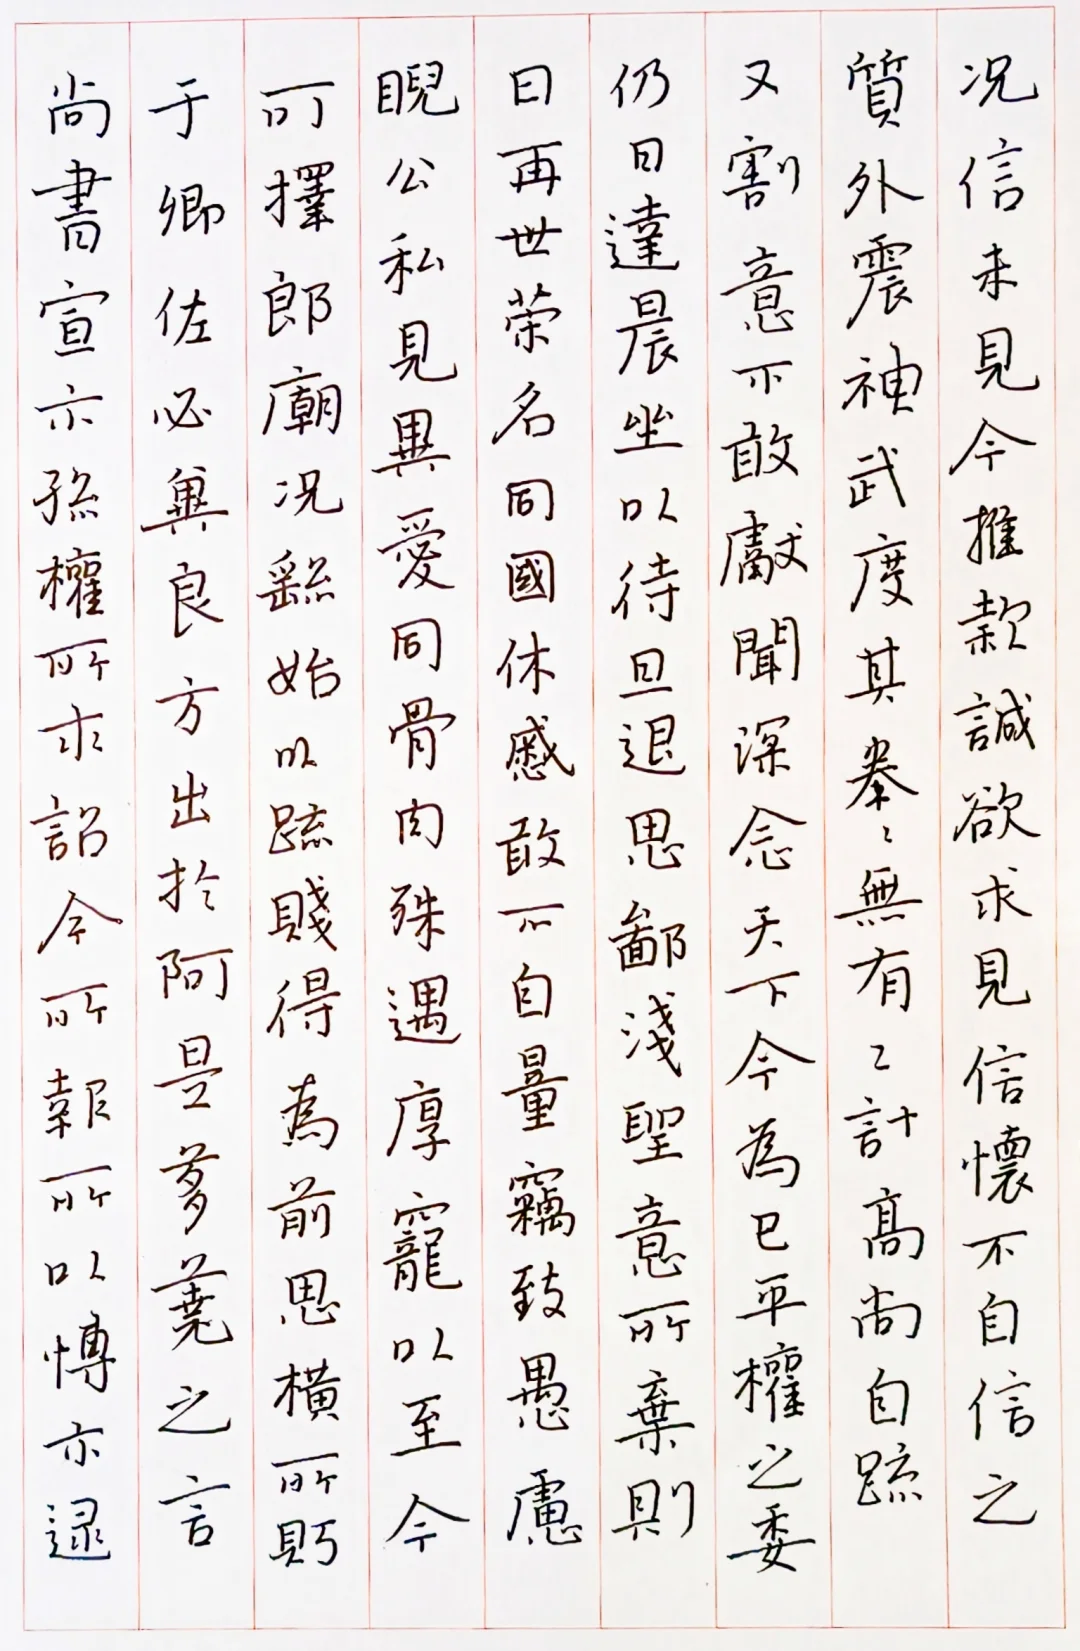 尚書宣示孫權所求詔令所報所以博示逮
于卿佐必冀良方出於阿是芻蕘之言
可擇郎廟況繇始以疏賤得為前恩橫所眄
睨公私見異愛同骨肉殊遇厚寵以至今
日再世榮名同國休戚敢不自量竊致愚慮
仍日達晨坐以待旦退思鄙淺聖意所棄則
又割意不敢獻聞深念天下今為已平權之委
質外震神武度其拳〻無有二計高尚自疏
況信未見今推款誠欲求見信懷不自信之